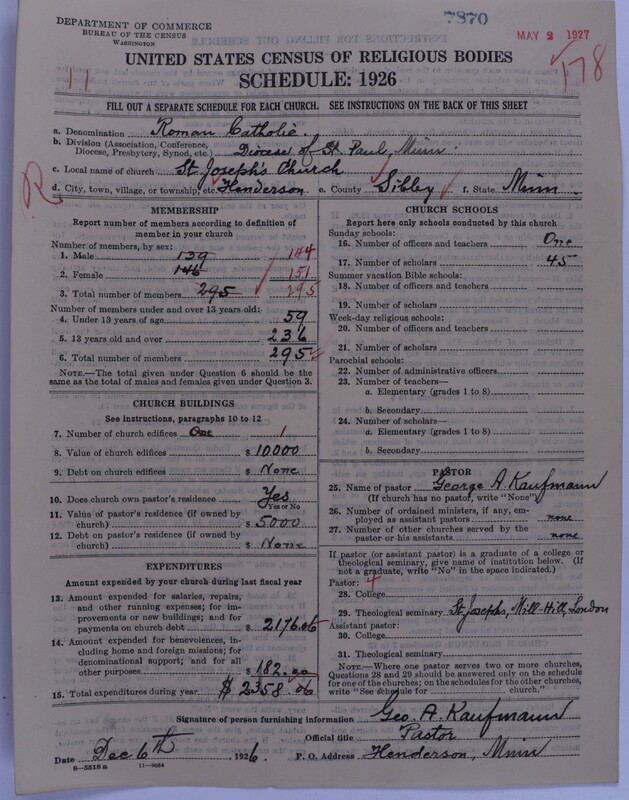 DEPARTMENT OF COMMERCE
BUREAU OF THE CENSUS
WASHINGTON
7870
MAY 2 1927
178
11
UNITED STATES CENSUS OF RELIGIOUS BODIES
SCHEDULE: 1926
FILL OUT A SEPARATE SCHEDULE FOR EACH CHURCH. SEE INSTRUCTIONS ON THE BACK OF THIS SHEET
a. Denomination Roman Catholic.
b. Division (Association, Conference, Diocese, Presbytery, Synod, etc.) Diocese of St. Paul, Minn.
c. Local name of church St Joseph's Church
R
d. City, town, village, or township, etc. Henderson e. County Sibley f. State Minn.
MEMBERSHIP
Report number of members according to definition of
member in your church
Number of members, by sex:
1. Male 139 144
2. Female 146 151
3. Total number of members 295 295
Number of members under and over 13 years old:
4. Under 13 years of age 59
5. 13 years old and over 236
6. Total number of members 295
NOTE.—The total given under Question 6 should be
same as the total of males and females given under Question 3.
CHURCH BUILDINGS
See instructions, paragraphs 10 to 12
7. Number of church edifices One 1
8. Value of church edifices $ 10000
9. Debt on church edifices $ None
10. Does church own pastor's residence Yes
Yes or No
11. Value of pastor's residence (if owned by
church) $ 5000
12. Debt on pastor's residence (if owned by
church) $ None
EXPENDITURES
Amount expended by your church during last fiscal year
13. Amount expended for salaries, repairs,
and other running expenses; for im-
provements or new buildings; and for
payments on church debt $ 2176.06
14. Amount expended for benevolences, in-
cluding home and foreign missions; for
denominational support; and for all
other purposes $ 182.00
15. Total expenditures during year $ 2358.06
CHURCH SCHOOLS
Report here only schools conducted by this church
Sunday schools:
16. Number of officers and teachers One
17. Number of scholars 45
Summer vacation Bible schools:
18. Number of officers and teachers
19. Number of scholars
Week-day religious schools:
20. Number of officers and teachers
21. Number of scholars
Parochial schools:
22. Number of administrative officers
23. Number of teachers—
a. Elementary (grades 1 to 8)
b. Secondary
24. Number of scholars—
a. Elementary (grades 1 to 8)
b. Secondary
PASTOR
25. Name of pastor George A. Kaufmann
(If church has no pastor, write "None")
26. Number of ordained ministers, if any, em-
ployed as assistant pastors none
27. Number of other churches served by the
pastor or his assistants none
If pastor (or assistant pastor) is a graduate of a college or
theological seminary, give name of institution below. (If
not a graduate, write "No" in the space indicated.)
Pastor:
28. College
29. Theological seminary St Josephs, Mill-Hill, London
Assistant pastor:
30. College
31. Theological seminary
NOTE.—Where one pastor serves two or more churches,
Questions 28 and 29 should be answered only on the schedule
for one of the churches; on the schedules for the other churches,
write "See schedule for church."
Signature of person furnishing information Geo. A. Kaufmann
Official title Pastor
Date Dec 6th, 1926. P. O. Address Henderson, Minn
8-5518a 11-9054